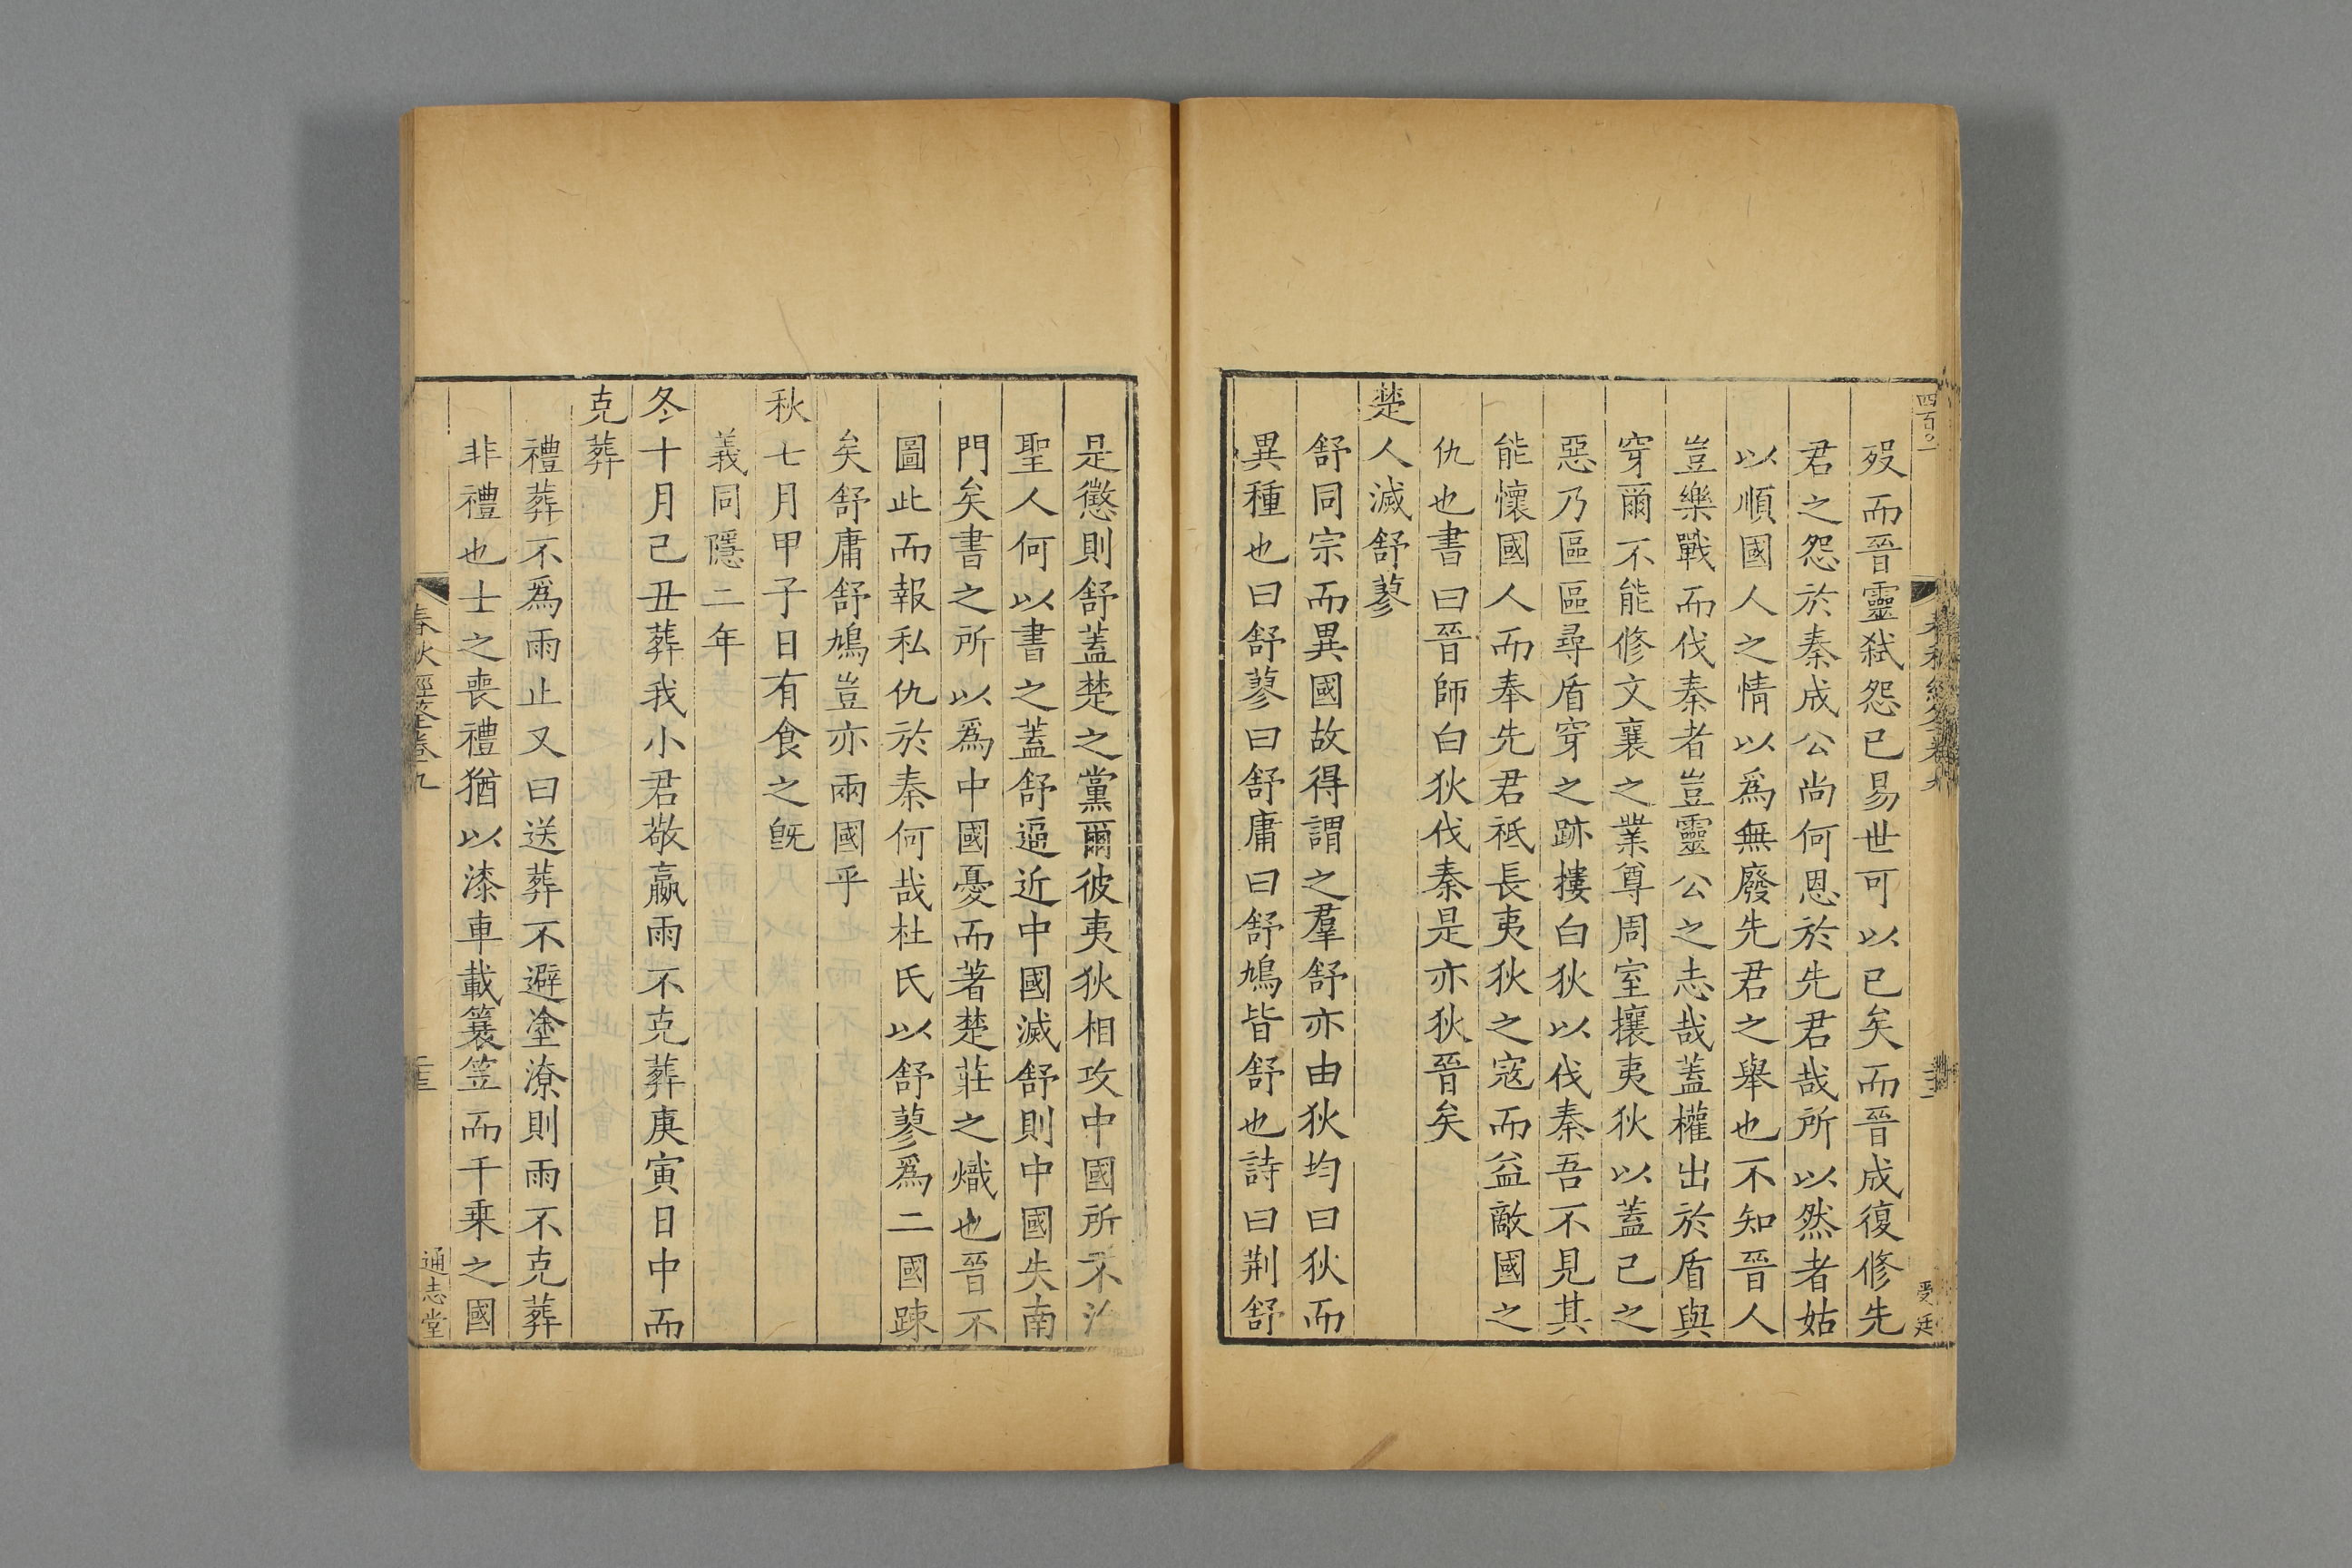 四百
春秋經筌卷九
歿而晉靈弑怨已易世可以已矣而晉成復修先
君之怨於秦成公尚何恩於先君哉所以然者姑
以順國人之情以爲無廢先君之舉也不知晉人
豈樂戰而伐秦者豈靈公之志哉蓋權出於盾與
穿爾不能修文襄之業尊周室攘夷狄以蓋己之
惡乃區區尋盾穿之跡摟白狄以伐秦吾不見其
能懷國人而奉先君祗長夷狄之寇而益敵國之
仇也書曰晉師白狄伐秦是亦狄晉矣
楚人滅舒蓼
舒同宗而異國故得謂之羣舒亦由狄均曰狄而
異種也曰舒蓼曰舒庸曰舒鳩皆舒也詩曰荆舒
是懲則舒蓋楚之黨爾彼夷狄相攻中國所不治
聖人何以書之蓋舒逼近中國滅舒則中國失南
門矣書之所以爲中國憂而著楚莊之熾也晉不
圖此而報私仇於秦何哉杜氏以舒蓼爲二國踈
矣舒庸舒鳩豈亦兩國乎
秋七月甲子日有食之旣
義同隱二年
冬十月己丑葬我小君敬嬴雨不克葬庚寅日中而
克葬
禮葬不爲雨止又曰送葬不避塗潦則雨不克葬
非禮也士之喪禮猶以漆車載簑笠而千乗之國
春秋經筌卷九
通志堂